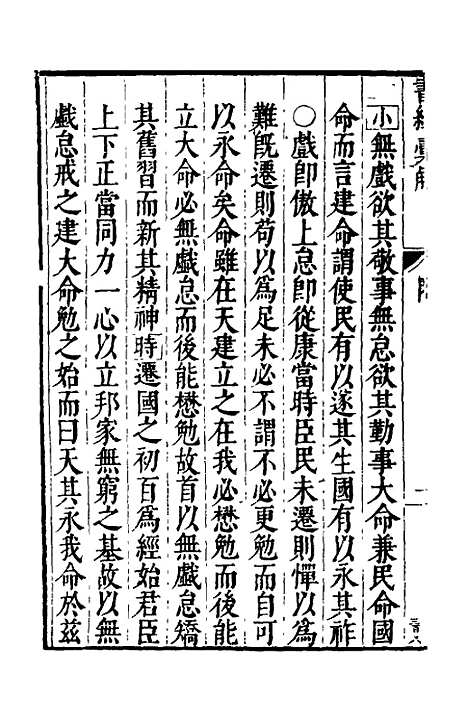 小無戲欲其敬事無怠欲其勤事大命兼民命國
命而言建命謂使民有以遂其生國有以永其祚
○戲卽傲上怠卽從康當時臣民未遷則憚以爲
難旣遷則苟以爲足未必不謂不必更勉而自可
以永命矣命雖在天建立之在我必懋勉而後能
立大命必無戲怠而後能懋勉故首以無戲怠矯
其舊習而新其精神時遷國之初百爲經始君臣
上下正當同力一心以立邦家無窮之基故以無
戲怠戒之建大命勉之始而曰天其永我命於玆